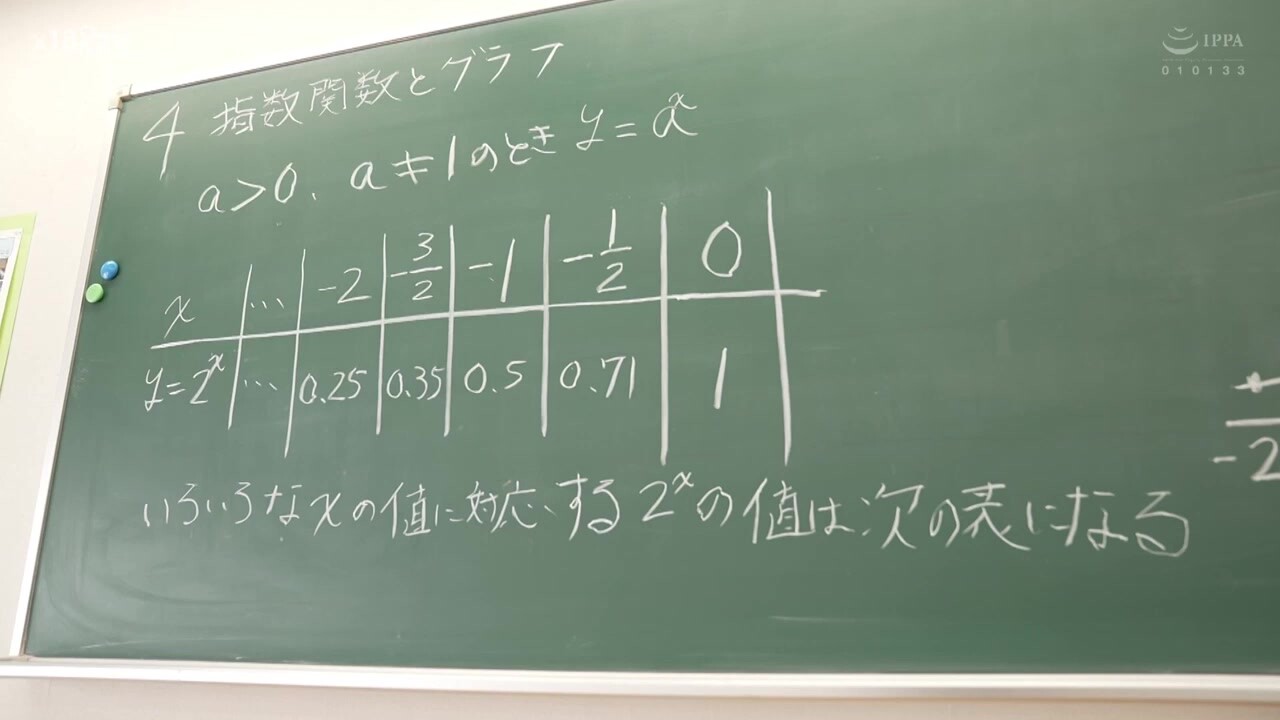 IPPA
010133
4 指数関数とグラフ
a>0、a≠1のとき y=aˣ
x … -2 -3/2 -1 -1/2 0
y=2ˣ … 0.25 0.35 0.5 0.71 1
いろいろなxの値に対応する2ˣの値は次の表になる
-2